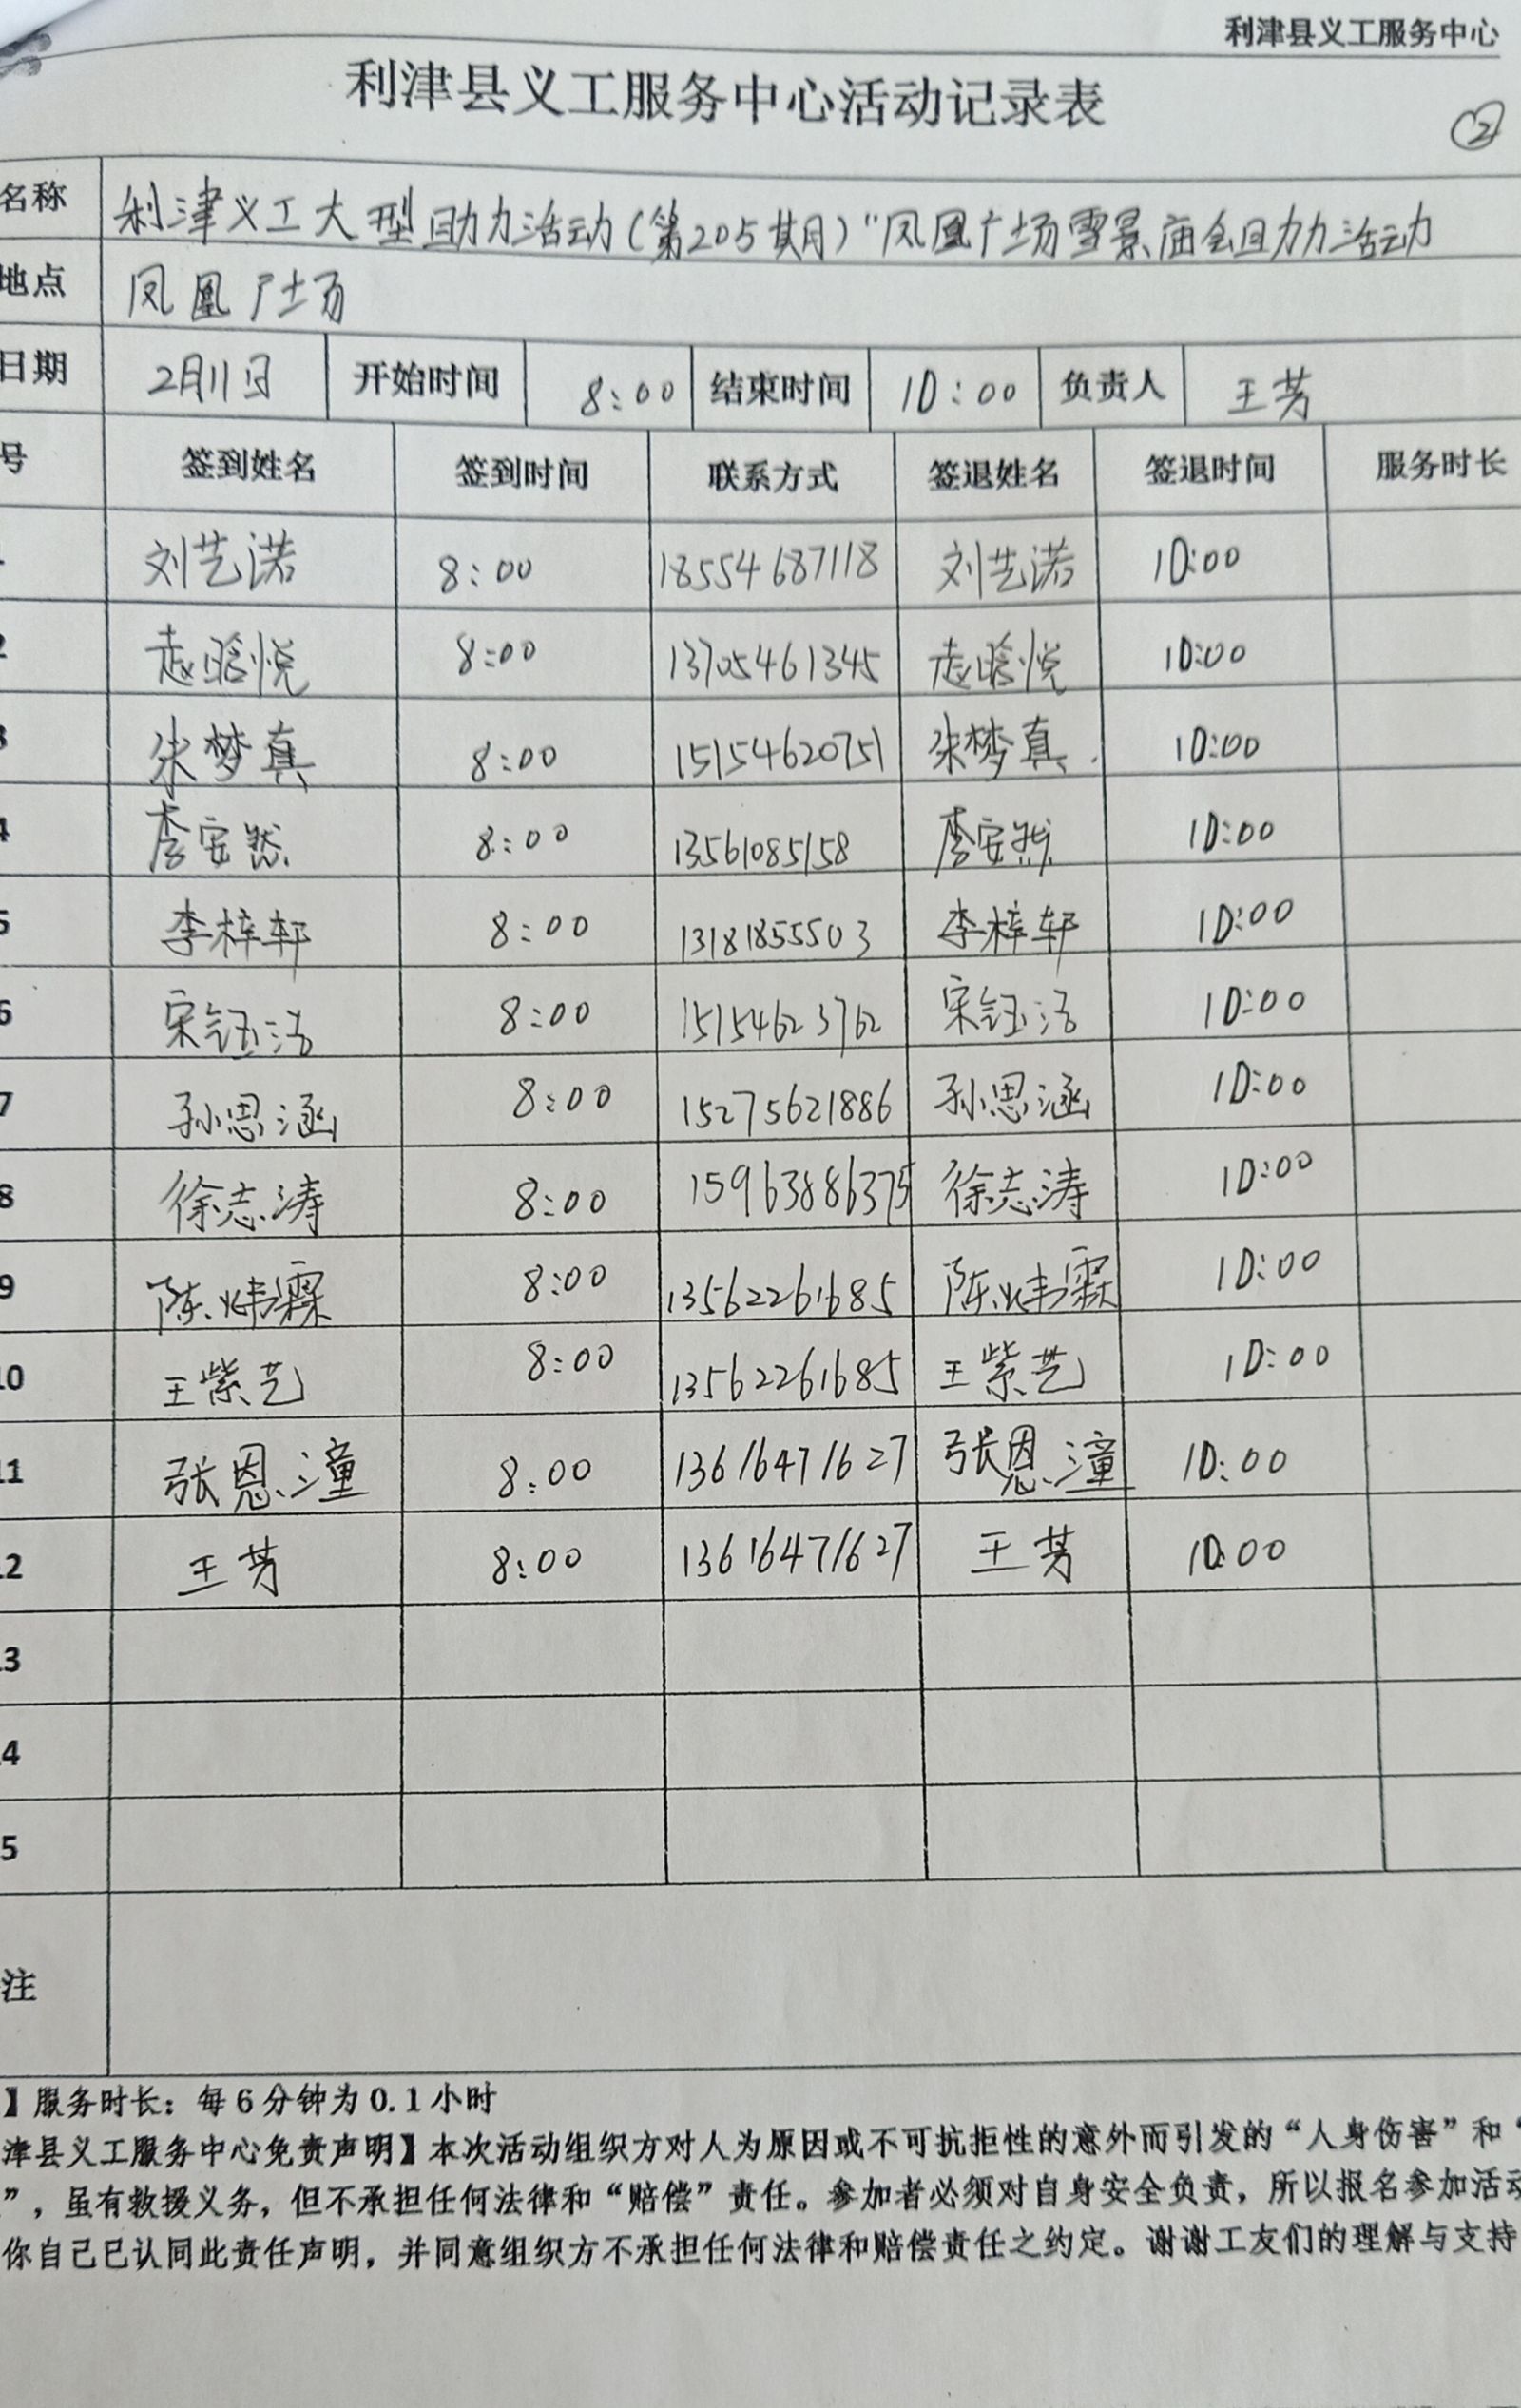 利津县义工服务中心
利津县义工服务中心活动记录表
②
名称 利津义工大型助力活动(第205期)“凤凰广场雪景庙会助力活动
地点 凤凰广场
日期 2月11日 开始时间 8:00 结束时间 10:00 负责人 王芳
号 签到姓名 签到时间 联系方式 签退姓名 签退时间 服务时长
刘艺诺 8:00 18554687118 刘艺诺 10:00
2 赵晗悦 8:00 13705461345 赵晗悦 10:00
3 张梦真 8:00 15154620751 张梦真 10:00
4 李安然 8:00 13561085158 李安然 10:00
5 李梓轩 8:00 13181855503 李梓轩 10:00
6 宋钰洁 8:00 15154623762 宋钰洁 10:00
7 孙思涵 8:00 15275621886 孙思涵 10:00
8 徐志涛 8:00 15963886375 徐志涛 10:00
9 陈炜霖 8:00 13562261685 陈炜霖 10:00
10 王紫艺 8:00 13562261685 王紫艺 10:00
11 张恩潼 8:00 13616471627 张恩潼 10:00
12 王芳 8:00 13616471627 王芳 10:00
13
14
5
注
】服务时长：每6分钟为0.1小时
津县义工服务中心免责声明】本次活动组织方对人为原因或不可抗拒性的意外而引发的“人身伤害”和“
”，虽有救援义务，但不承担任何法律和“赔偿”责任。参加者必须对自身安全负责，所以报名参加活动
你自己已认同此责任声明，并同意组织方不承担任何法律和赔偿责任之约定。谢谢工友们的理解与支持